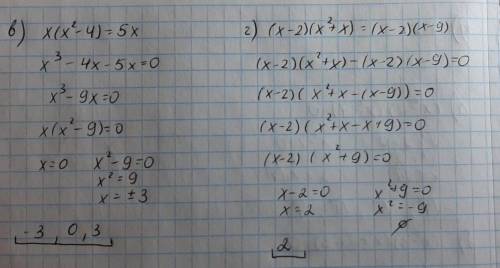 в) x(x²-4)=5x
x³-4x-5x=0
x³-9x=0
x(x²-9)=0
x=0 x²-9=0
x²=9
x=±3
-3 0,3
г) (x-2)(x²+x)=(x-2)(x-9)
(x-2)(x²+x)-(x-2)(x-9)=0
(x-2)(x²+x-(x-9))=0
(x-2)(x²+x-x+9)=0
(x-2)(x²+9)=0
x-2=0 x²+9=0
x=2 x²=-9
∅
2